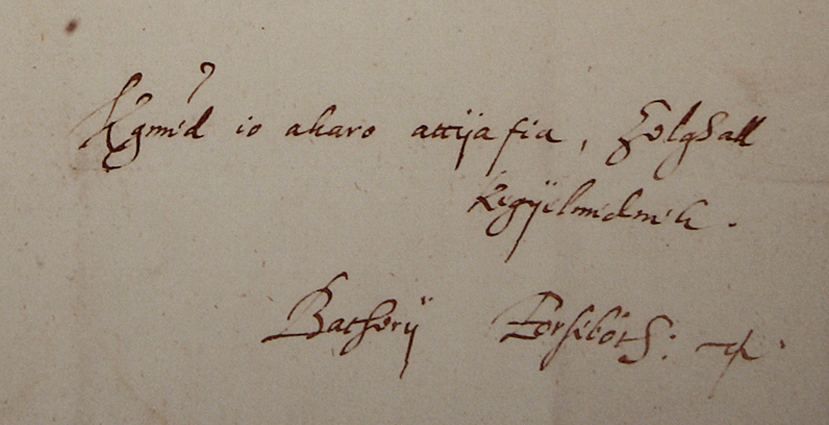 Kgmed io akaro attÿafia, Zolghall
kegÿelmednek.
Bathorÿ Ersebeth: